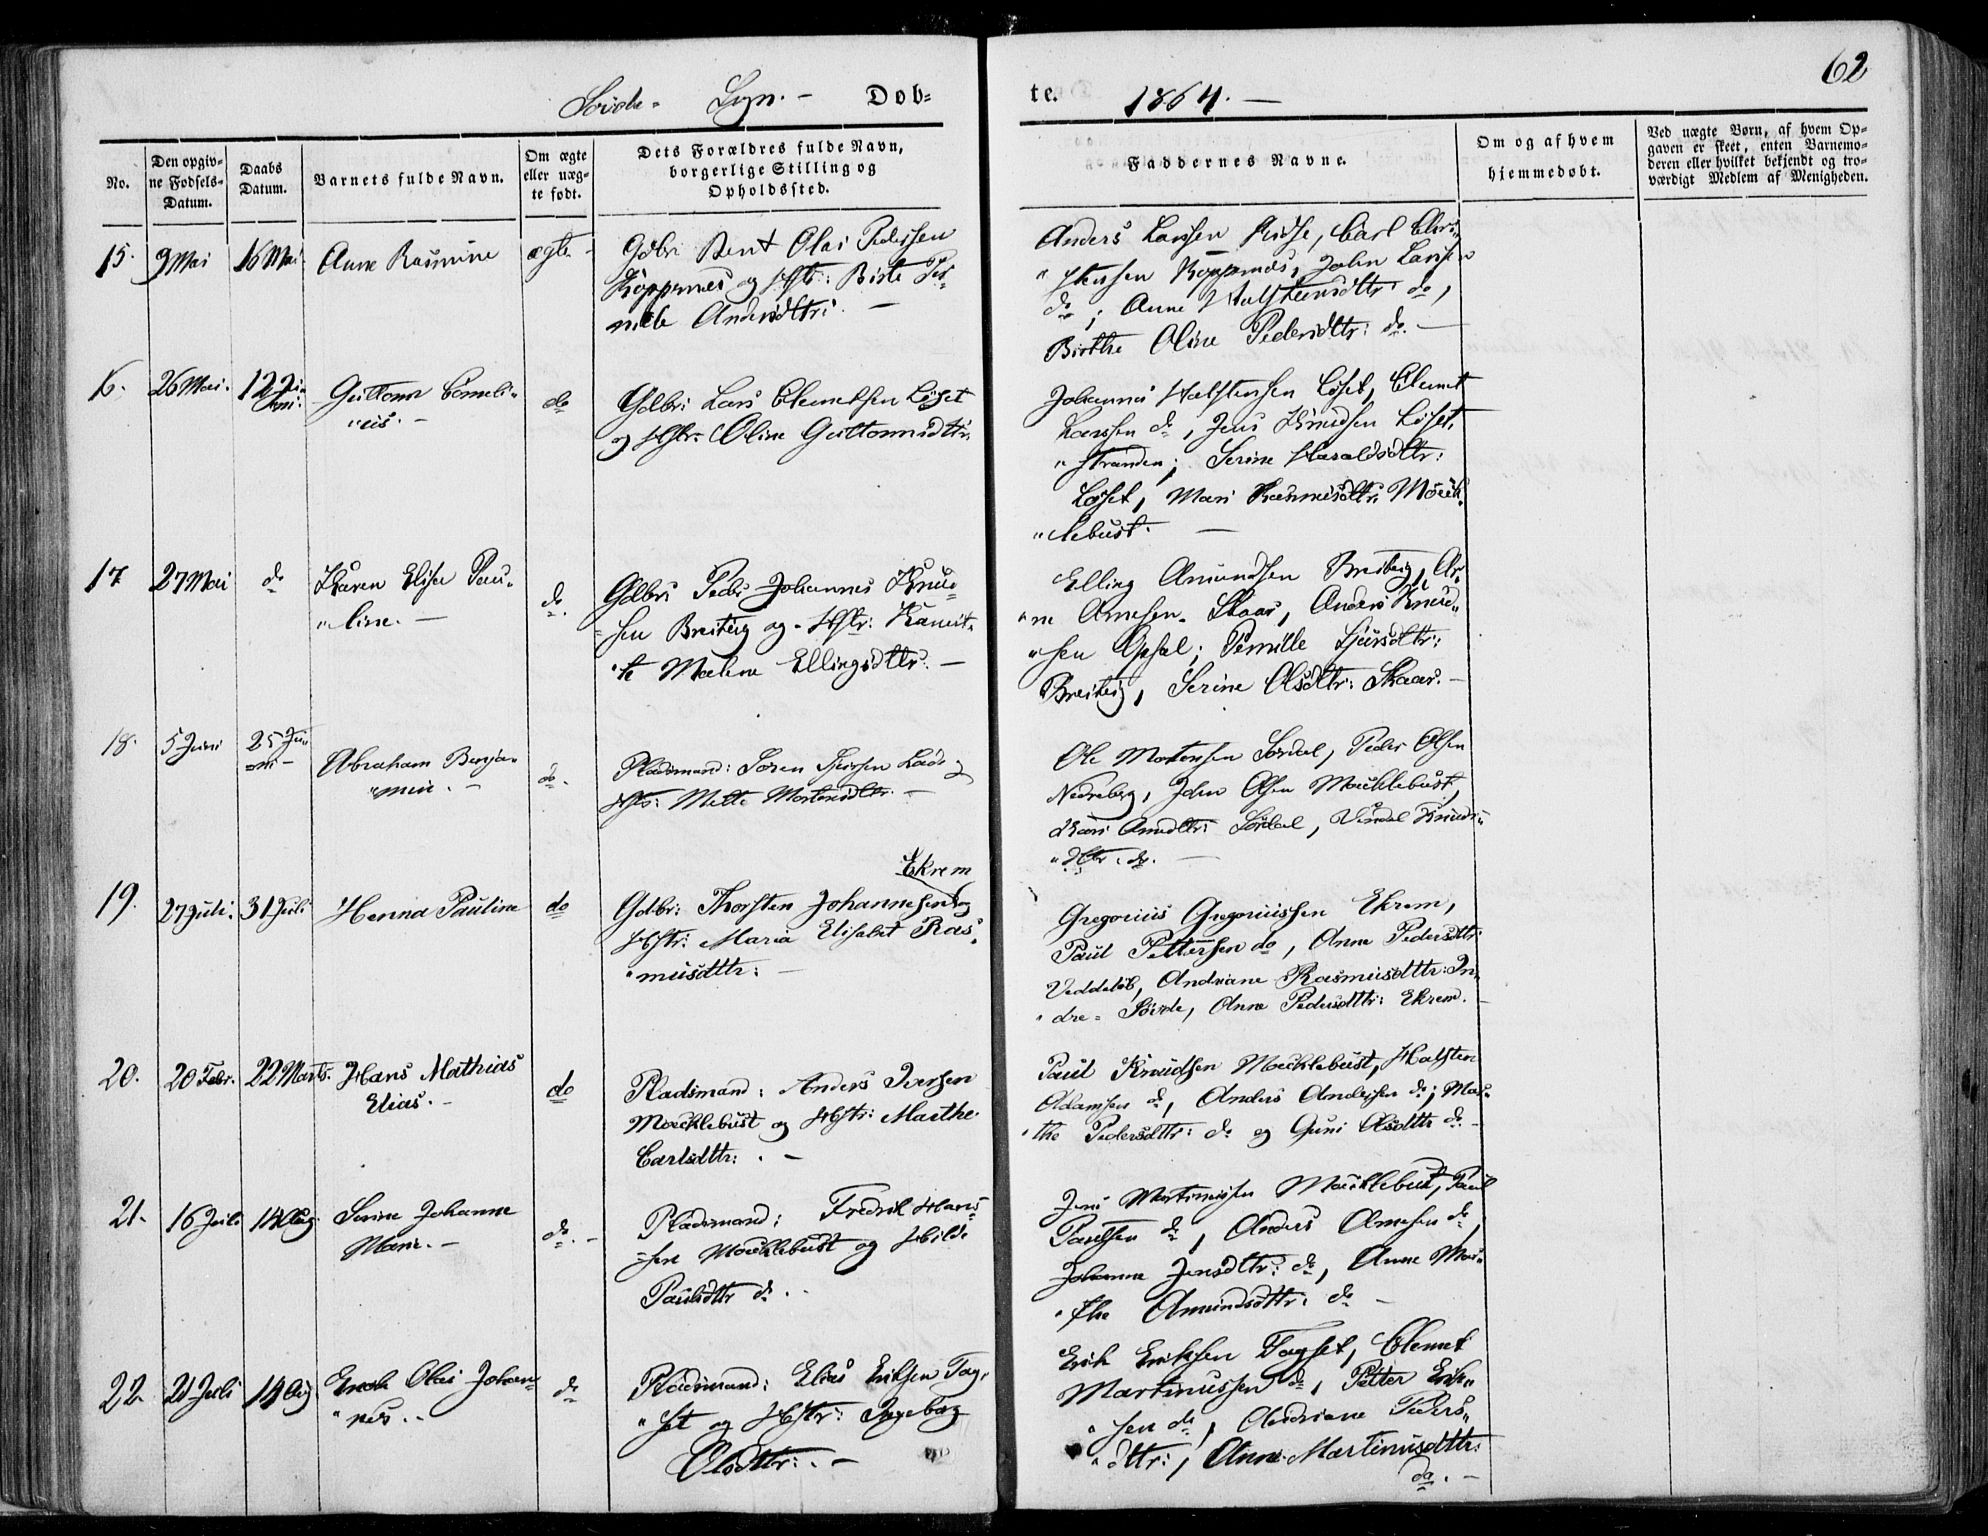 62
Søvde- Sogn. - Døb=
te. 1864. -
No.
Den opgiv-
ne Fødsels-
Datum.
Daabs
Datum.
Barnets fulde Navn.
Om ægte
eller uæg-
te født.
Dets Forældres fulde Navn,
borgerlige Stilling og
Opholdssted.
Faddernes Navne.
Om og af hvem
hjemmedøbt.
Ved uægte Børn, af hvem Op-
gaven er skeet, enten Barnemo-
deren eller hvilket bekjendt og tro-
værdigt Medlem af Menigheden.
15. 9 Mai 16 Mai Anne Rasmine ægte -
Gdbr: Bent Olai Pedersen
Koppernes og Hstr: Birte Per
nille Andersdttr: -
Anders Larssen Ridse, Carl Chri
"stensen Koppernæs, John Larssen
do; Anne Halsteensdttr: do,
Birthe Oline Pedersdttr: do. -
16. 26 Mai. 12 Ju-
ni. Guttorm Corneli-
"us. - do
Gdbr: Lars Clemetsen Løset
og Hstr: Oline Guttormsdttr.
Johannes Halstensen Løset, Clemet
Larssen do, Jens Knudsen Løset,
"stranden; Serine Haraldsdttr:
Løset, Mari Rasmusdttr: Moeck
"lebust. -
17 27 Mai do Karen Elise Pau-
"line. - do.
Gdbr: Peder Johannes Knud
sen Breiteig og Hstr: Kanut-
"te Malene Ellingsdttr. -
Elling Amundsen Breiteig, Ar
"ne Arnesen Skaar, Anders Knud-
"sen Opsal; Pernille Sjursdttr:
Breiteig, Serine Olsdttr: Skaar. -
18. 5 Juni 25 Ju-
ni - Abraham Benja-
"min. - do.
Pladsmand: Søren Sjursen Lade og
Hstr: Mette Mortensdttr. -
Ole Mortensen Sørdal, Peder Olsen
Nedreberg, John Olsen Moecklebust,
Kari Arnedttr: Sørdal, Vendel Knuds-
"dttr: do. -
19. 27 Juli. 31 Juli Henna Pauline do
Ekrem
Gdbr: Thorsten Johannesen og
Hstr: Maria Elisabet Ras-
"musdttr: -
Gregorius Gregoriussen Ekrem,
Paul Pettersen do, Anne Pedersdttr:
Veddeløb, Andriane Rasmusdttr: In-
"dre- Søvde, Anne Pedersdttr: Ekrem. -
20. 20 Febr. 22 Marts. Hans Mathias
Elias. - do
Pladsmand: Anders Iversen
Moecklebust og Hstr: Marthe
Carlsdttr: . -
Paul Knudsen Moecklebust, Halsten
Adamsen do, Anders Andersen do; Mar-
"the Pedersdttr: do og Guni Olsdttr do -
21. 16 Juli 14 Aug. Serine Johanne
Marie. - do. -
Pladsmand: Fredrik Hans
"sen Moecklebust og Hilde
Paulsdttr do. -
Jens Martinussen Moecklebust, Paul
Paulsen do, Anders Arnesen do,
Johanne Jensdttr: do, Anne Mar-
"the Amundsdttr: do -
22. 21 Juli 14 Aug Enok Olai Johan-
"nes. - do
Pladsmand: Elias Eriksen Fag-
"set og Hstr: Ingeborg
Olsdttr: . -
Erik Eriksen Fagset, Clemet
Martinussen do, Petter Erik-
"sen do, Andriane Peders-
"dttr:, Anne Martinusdttr:
do. -